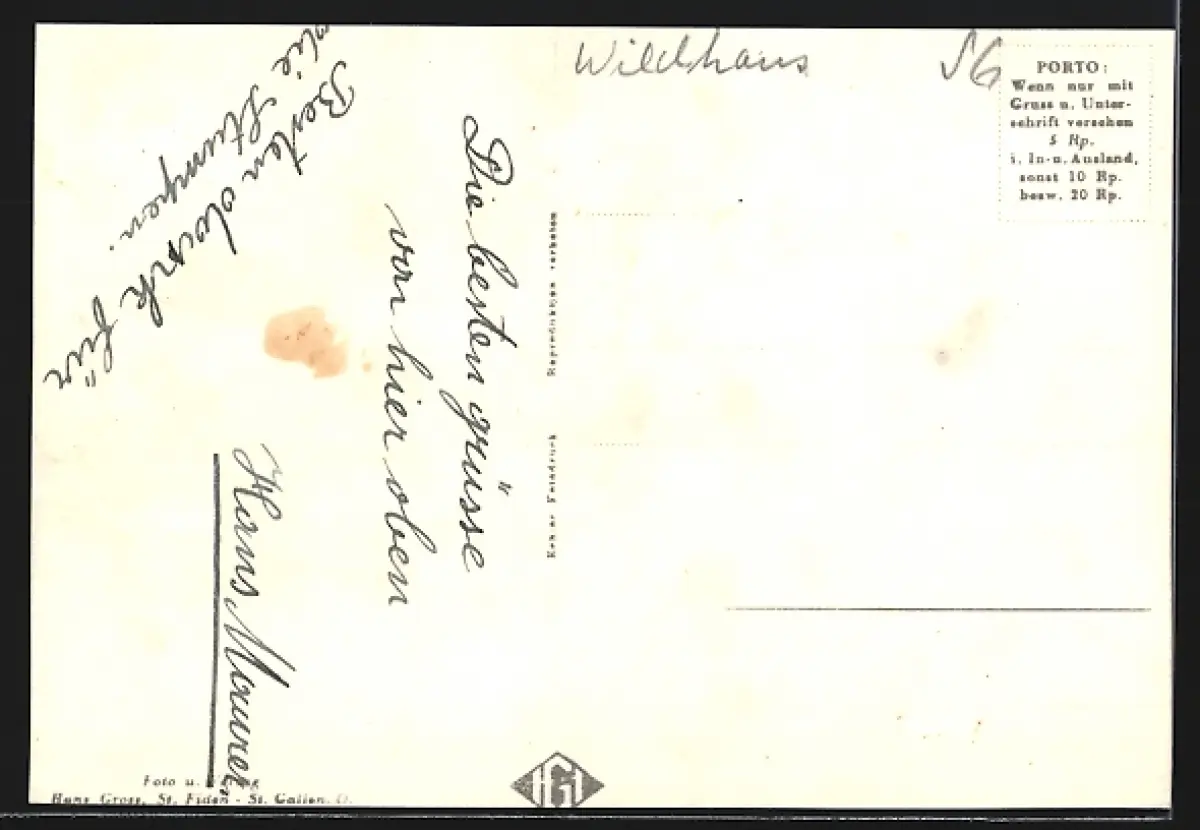 Wildhaus SG
PORTO:
Wenn nur mit
Gruss u. Unter-
schrift versehen
5 Rp.
i. In-u. Ausland,
sonst 10 Rp.
bezw. 20 Rp.
Die besten grüsse
von hier oben
Hans Maurer
Besten dank für
die Stumpen.
Echter Fotodruck
Reproduktion verboten
Foto u. Verlag
Hans Gross, St. Fiden - St. Gallen O.
HG